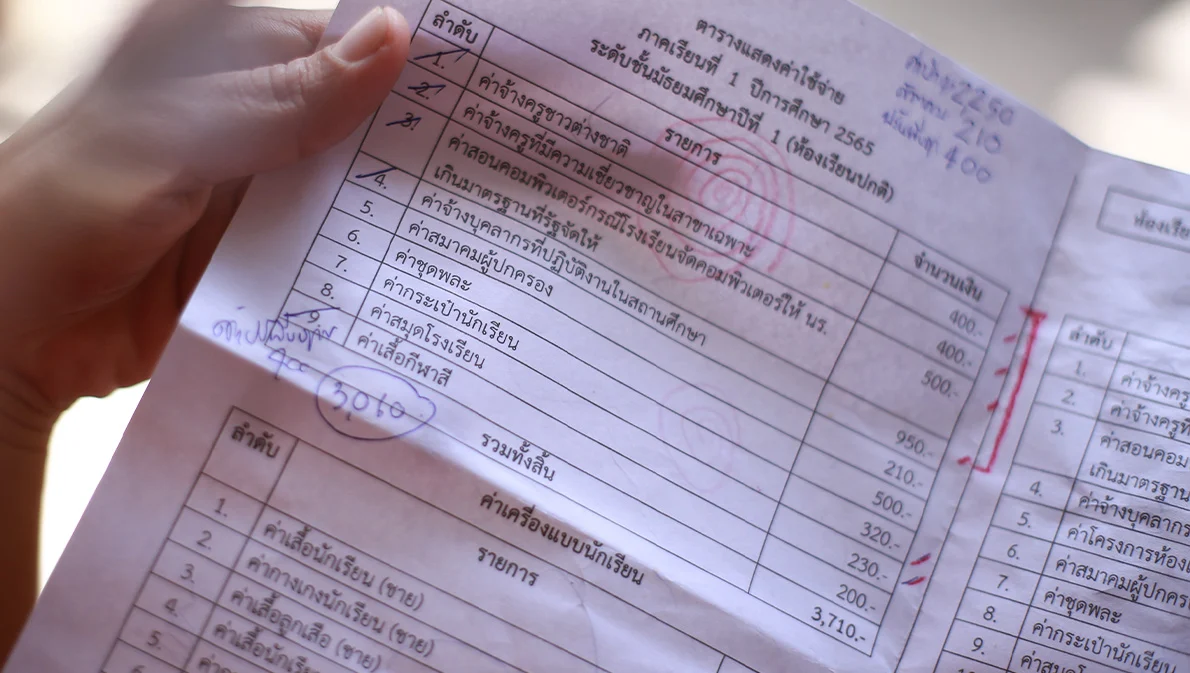 ตารางแสดงค่าใช้จ่าย
ภาคเรียนที่ 1 ปีการศึกษา 2565
ระดับชั้นมัธยมศึกษาปีที่ 1 (ห้องเรียนปกติ)
2250
210
400
ลำดับ รายการ จำนวนเงิน
1. ค่าจ้างครูชาวต่างชาติ 400.-
2. ค่าจ้างครูที่มีความเชี่ยวชาญในสาขาเฉพาะ 400.-
3. ค่าสอนคอมพิวเตอร์กรณีโรงเรียนจัดคอมพิวเตอร์ให้ นร. 500.-
เกินมาตรฐานที่รัฐจัดให้
4. ค่าจ้างบุคลากรที่ปฏิบัติงานในสถานศึกษา 950.-
5. ค่าสมาคมผู้ปกครอง 210.-
6. ค่าชุดพละ 500.-
7. ค่ากระเป๋านักเรียน 320.-
8. ค่าสมุดโรงเรียน 230.-
9. ค่าเสื้อกีฬาสี 200.-
รวมทั้งสิ้น 3,710.-
400
3,010
ค่าเครื่องแบบนักเรียน
ลำดับ รายการ
1. ค่าเสื้อนักเรียน (ชาย)
2. ค่ากางเกงนักเรียน (ชาย)
3. ค่าเสื้อลูกเสือ (ชาย)
4. ค่าเสื้อนักเรีย
5.
ห้องเรีย
ลำดับ
1. ค่าจ้างครู
2. ค่าจ้างครูที
3. ค่าสอนคอม
เกินมาตรฐาน
4. ค่าจ้างบุคลากร
5. ค่าโครงการห้อง
6. ค่าสมาคมผู้ปกคร
7. ค่าชุดพละ
8. ค่ากระเป๋านักเรีย
9. ค่าสมุดโ